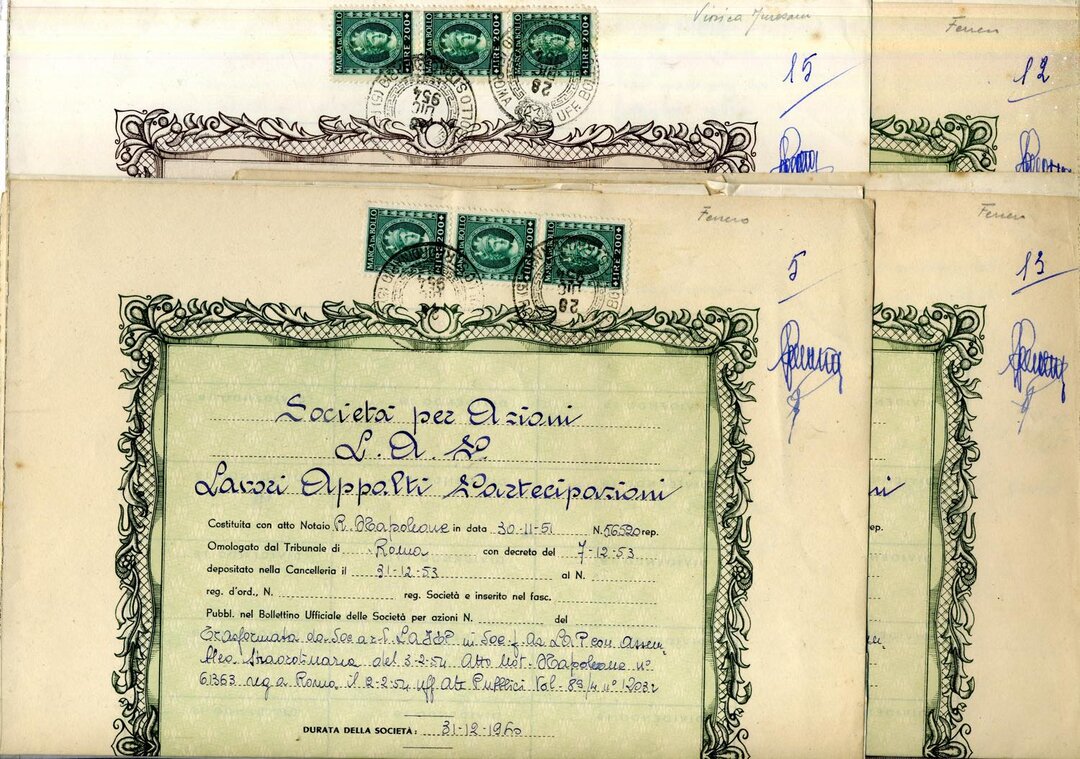 MARCA DA BOLLO LIRE 200 MARCA DA BOLLO LIRE 200 MARCA DA BOLLO LIRE 200
28 DIC 954
ROMA
28
UFF. BOLLO
15
Ferrero
12
MARCA DA BOLLO LIRE 200 MARCA DA BOLLO LIRE 200 MARCA DA BOLLO LIRE 200
28 DIC 954
Ferrero
5
Ferrero
13
Società per Azioni
L. A. P.
Lavori Appalti Partecipazioni
Costituita con atto Notaio R. Napoleone in data 30-11-51 N. 56520 rep.
Omologato dal Tribunale di Roma con decreto del 7-12-53
depositato nella Cancelleria il 31-12-53 al N.
reg. d'ord., N. reg. Società e inserito nel fasc.
Pubbl. nel Bollettino Ufficiale delle Società per azioni N. del
Trasformata da Soc. a r. l. in Soc. p. az. LAP con assem
blea straordinaria del 3-2-54 Atto Not. Napoleone n°
61363 reg a Roma il 2-54 uff Atti Pubblici Vol. 89/4 n°
DURATA DELLA SOCIETÀ: 31-12-1960
ni
rep.